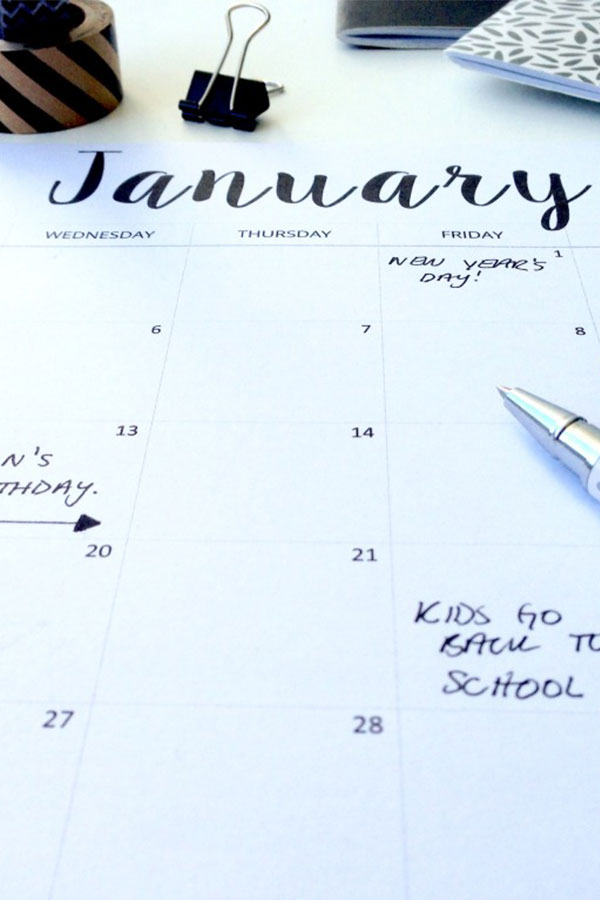 January
WEDNESDAY THURSDAY FRIDAY
1
NEW YEAR'S
DAY!
6 7 8
13 14
N'S
THDAY.
20 21
KIDS GO
BACK TO
SCHOOL
27 28